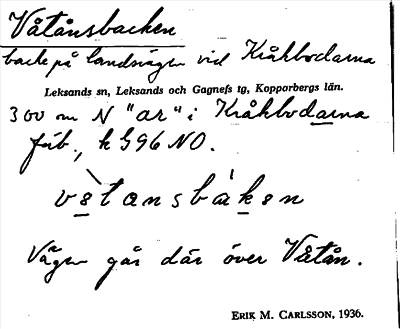 Våtånsbacken
backe på landsvägen vid Kråkbodarna
Leksands sn, Leksands och Gagnefs tg, Kopparbergs län.
300 m N "ar" i Kråkbodarna
fäb., k 996 NO.
vètansbáken
Vägen går där över Våtån.
ERIK M. CARLSSON, 1936.